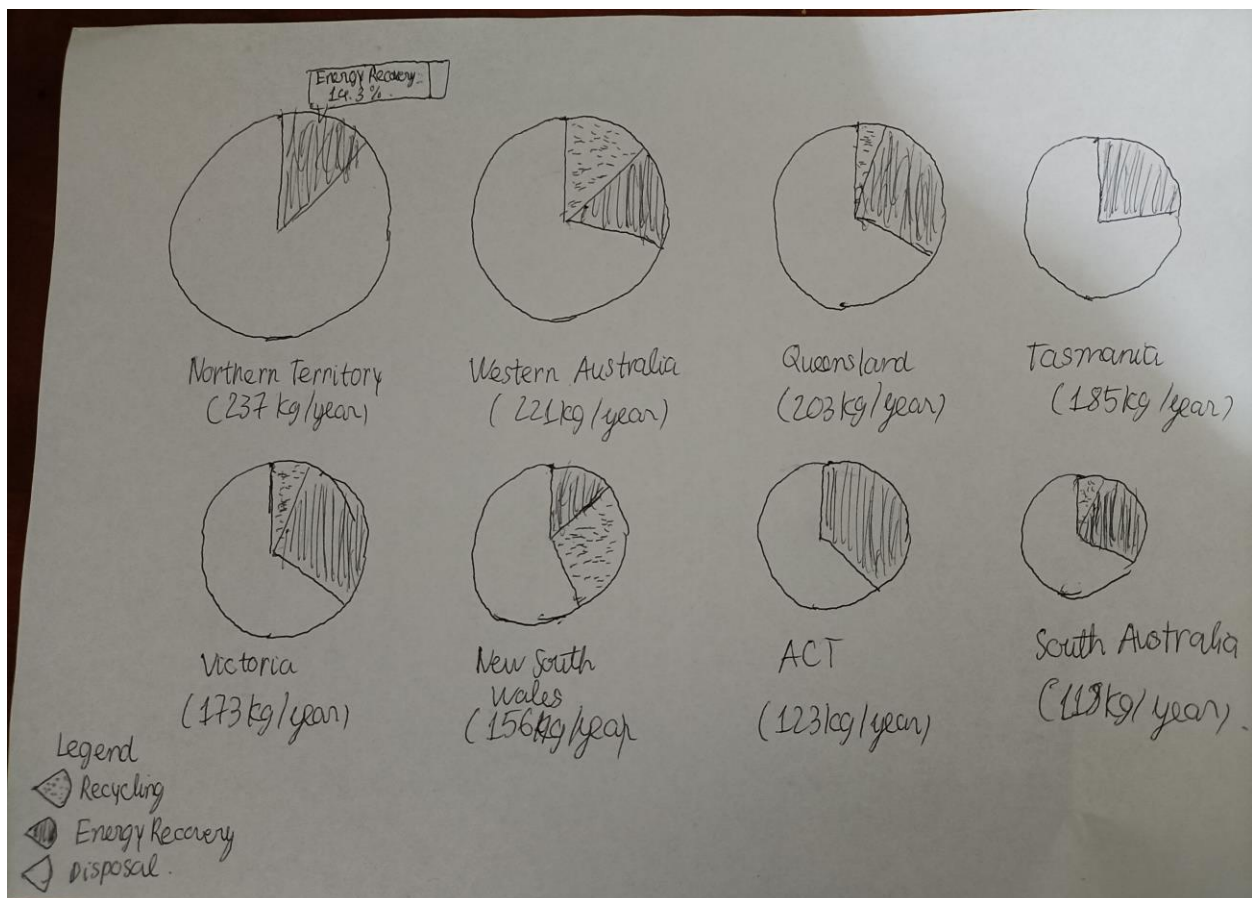 Energy Recovery
14.3%.
Northern Territory
(237 kg/year)
Western Australia
(221kg/year)
Queensland
(203kg/year)
Tasmania
(185kg/year)
Victoria
(173kg/year)
New South
Wales
(156kg/year
ACT
(123kg/year)
South Australia
(118kg/year).
Legend
Recycling
Energy Recovery
Disposal.